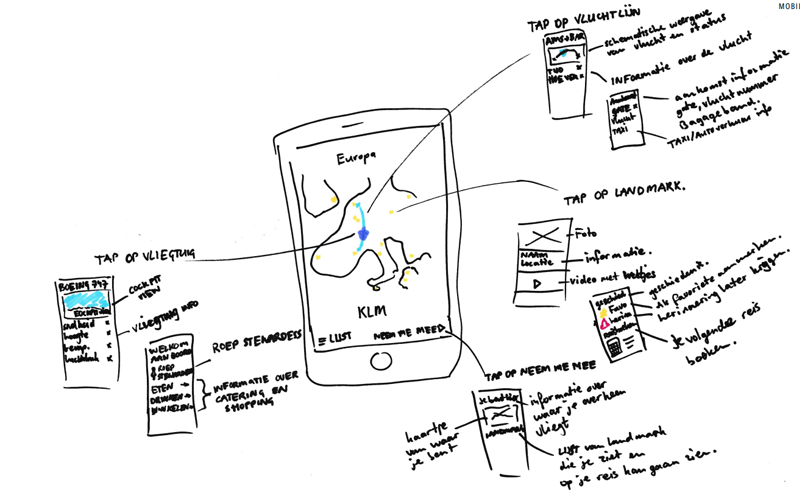 MOBIE
TAP OP VLUCHTLIJN
AMS → BAR
schematische weergave
van vlucht en status
INFORMATIE over de vlucht
Aankomst
GATE
vlucht
TAXI
aankomst informatie
gate, vluchtnummer
Bagageband.
TAXI/Autoverhuur info
Europa
KLM
LIJST
NEEM ME MEE
TAP OP LANDMARK.
Foto
NAAM
Locatie
informatie.
video met
geschiedenis.
als favoriete aanmerken.
herinnering later krijgen.
Je volgende reis
boeken.
TAP OP VLIEGTUIG
BOEING 747
COCKPIT
VIEW
snelheid
hoogte
temp.
VLIEGTUIG INFO
WELKOM
AAN BOORD
ROEP
STEWARDESS
ETEN
DRINKEN
WINKELEN
ROEP STEWARDESS
INFORMATIE OVER
CATERING EN
SHOPPING
TAP OP NEEM ME MEE
informatie over
waar je overheen
vliegt
haartje
van waar
je bent
LIJST van landmark
die je ziet en
op je reis kan gaan zien.